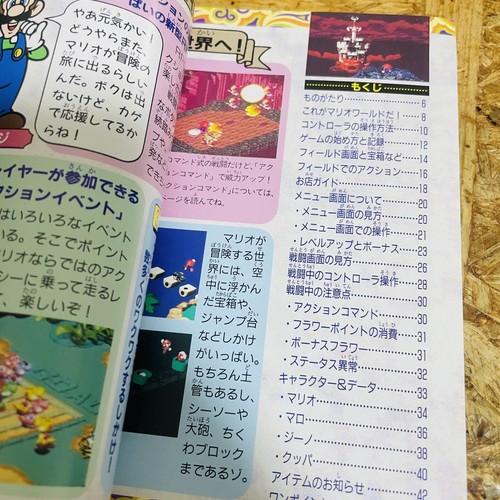 やあ元気かい！
どうやらまた、
マリオが冒険の
旅に出るらしい
んだ。ボクは出
ないけど、カゲ
で応援してるか
らね！
イヤーが参加できる
クションイベント」
はいろいろなイベント
いる。そこでポイント
マリオならではのアク
シーに乗って走るレ
て、楽しいぞ！
世界へ！
コマンド式の戦闘だけど、「アク
ションコマンド」で威力アップ！
クションコマンド」については、
ページを読んでね。
マリオが
冒険する世
界には、空
中に浮かん
だ宝箱や、
ジャンプ台
などしかけ
がいっぱい。
もちろん土
管もあるし、
シーソーや
大砲、ちく
わブロック
まであるゾ。
もくじ
ものがたり 6
これがマリオワールドだ！ 8
コントローラの操作方法 10
ゲームの始め方と記録 12
フィールド画面と宝箱など 14
フィールドでのアクション 16
お店ガイド 18
メニュー画面について 20
・メニュー画面の見方 20
・メニュー画面での操作 21
・レベルアップとボーナス 23
戦闘画面の見方 26
戦闘中のコントローラ操作 28
戦闘中の注意点 30
・アクションコマンド 30
・フラワーポイントの消費 31
・ボーナスフラワー 31
・ステータス異常 32
キャラクター＆データ 33
・マリオ 34
・マロ 36
・ジーノ 38
・クッパ 40
アイテムのお知らせ 42